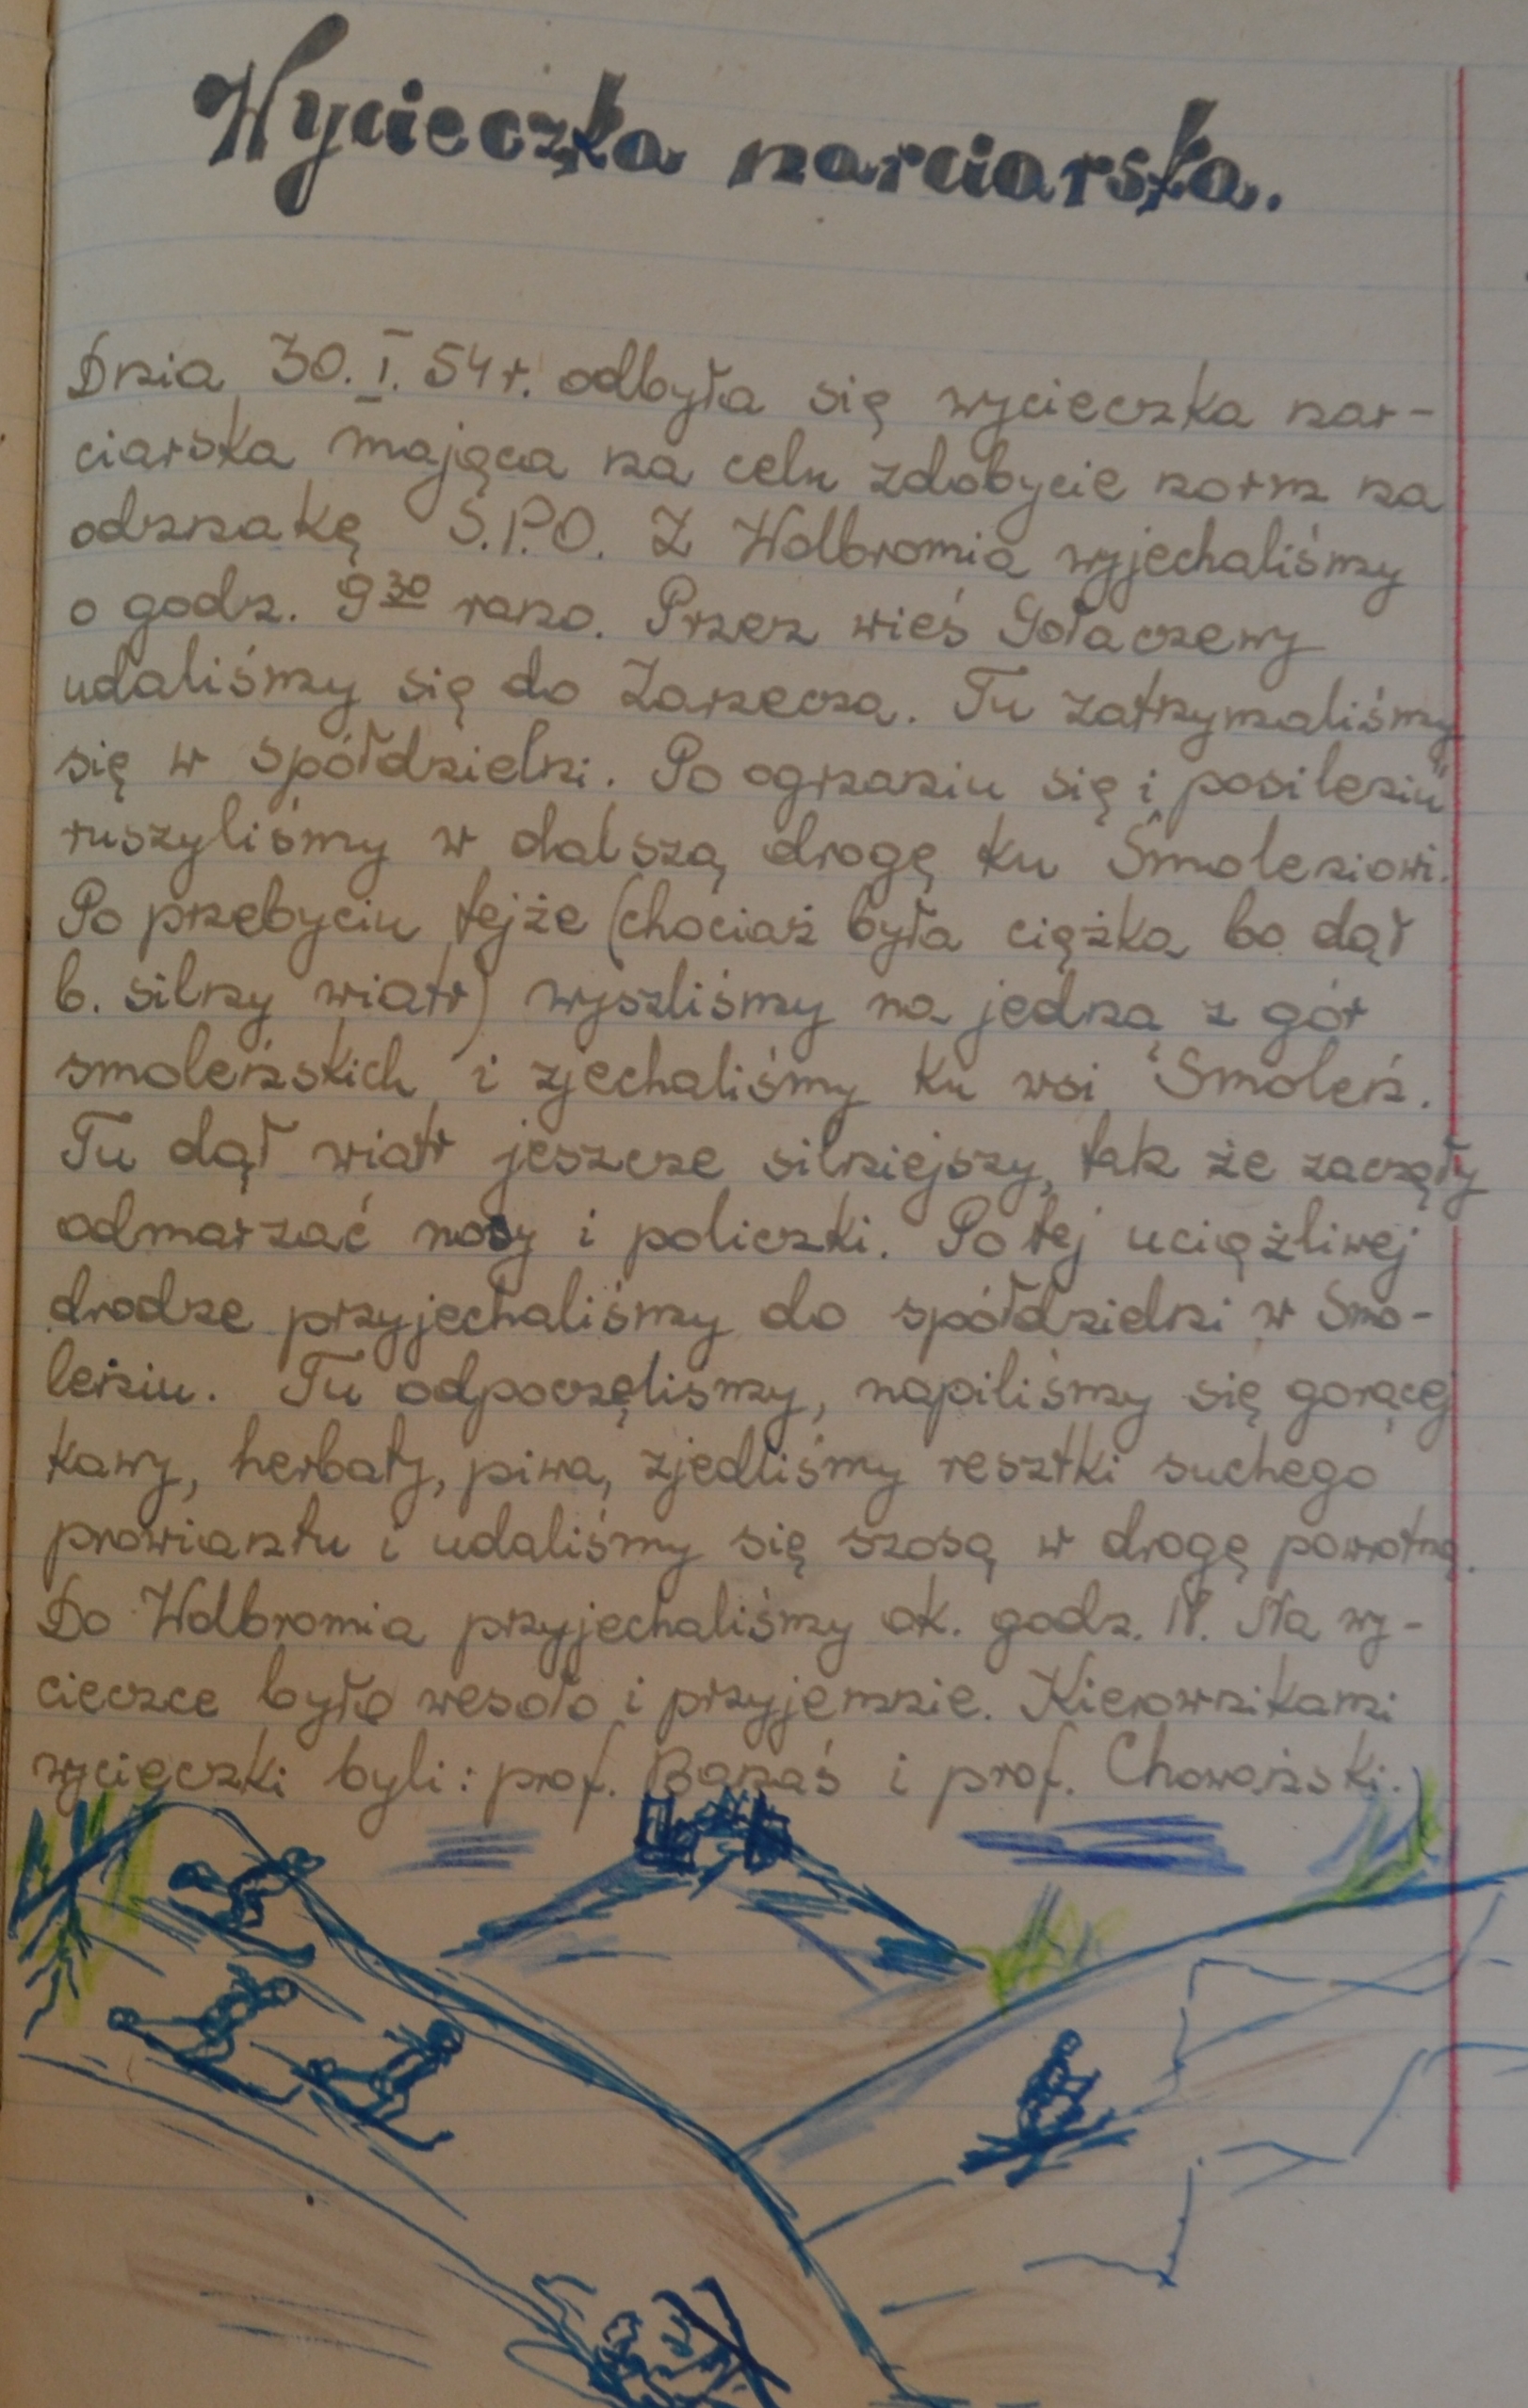 Wycieczka narciarska.
Dnia 30.I.54r. odbyła się wycieczka nar-
ciarska mająca na celu zdobycie norm na
odznakę S.P.O. Z Wolbromia wyjechaliśmy
o godz. 9³⁰ rano. Przez wieś Gołaczewy
udaliśmy się do Zarzecza. Tu zatrzymaliśmy
się w spółdzielni. Po ogrzaniu się i posileniu
ruszyliśmy w dalszą drogę ku Smoleniowi.
Po przebyciu tejże (chociaż była ciężka bo dął
b. silny wiatr) wyszliśmy na jedną z gór
smoleńskich i zjechaliśmy ku wsi Smoleń.
Tu dął wiatr jeszcze silniejszy, tak że zaczęły
odmarzać nosy i policzki. Po tej uciążliwej
drodze przyjechaliśmy do spółdzielni w Smo-
leniu. Tu odpoczęliśmy, napiliśmy się gorącej
kawy, herbaty, piwa, zjedliśmy resztki suchego
prowiantu i udaliśmy się szosą w drogę powrotną.
Do Wolbromia przyjechaliśmy ok. godz. Na wy-
cieczce było wesoło i przyjemnie. Kierownikami
wycieczki byli: prof. Banaś i prof. Chowański.